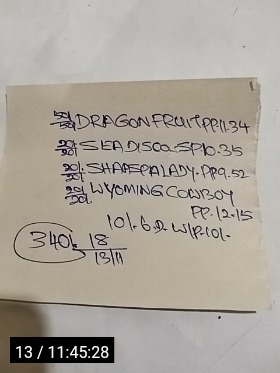 DRAGONFRUIT PP.11.34
20/. 20/. SEADISCO.SP10.35
20/. 20/. SHAPSPALADY.PP.9.52
20/. 20/. WYOMING COWBOY
PP.12.15
10/. W/P.10/.
340/. 18
13/11
13 / 11:45:28